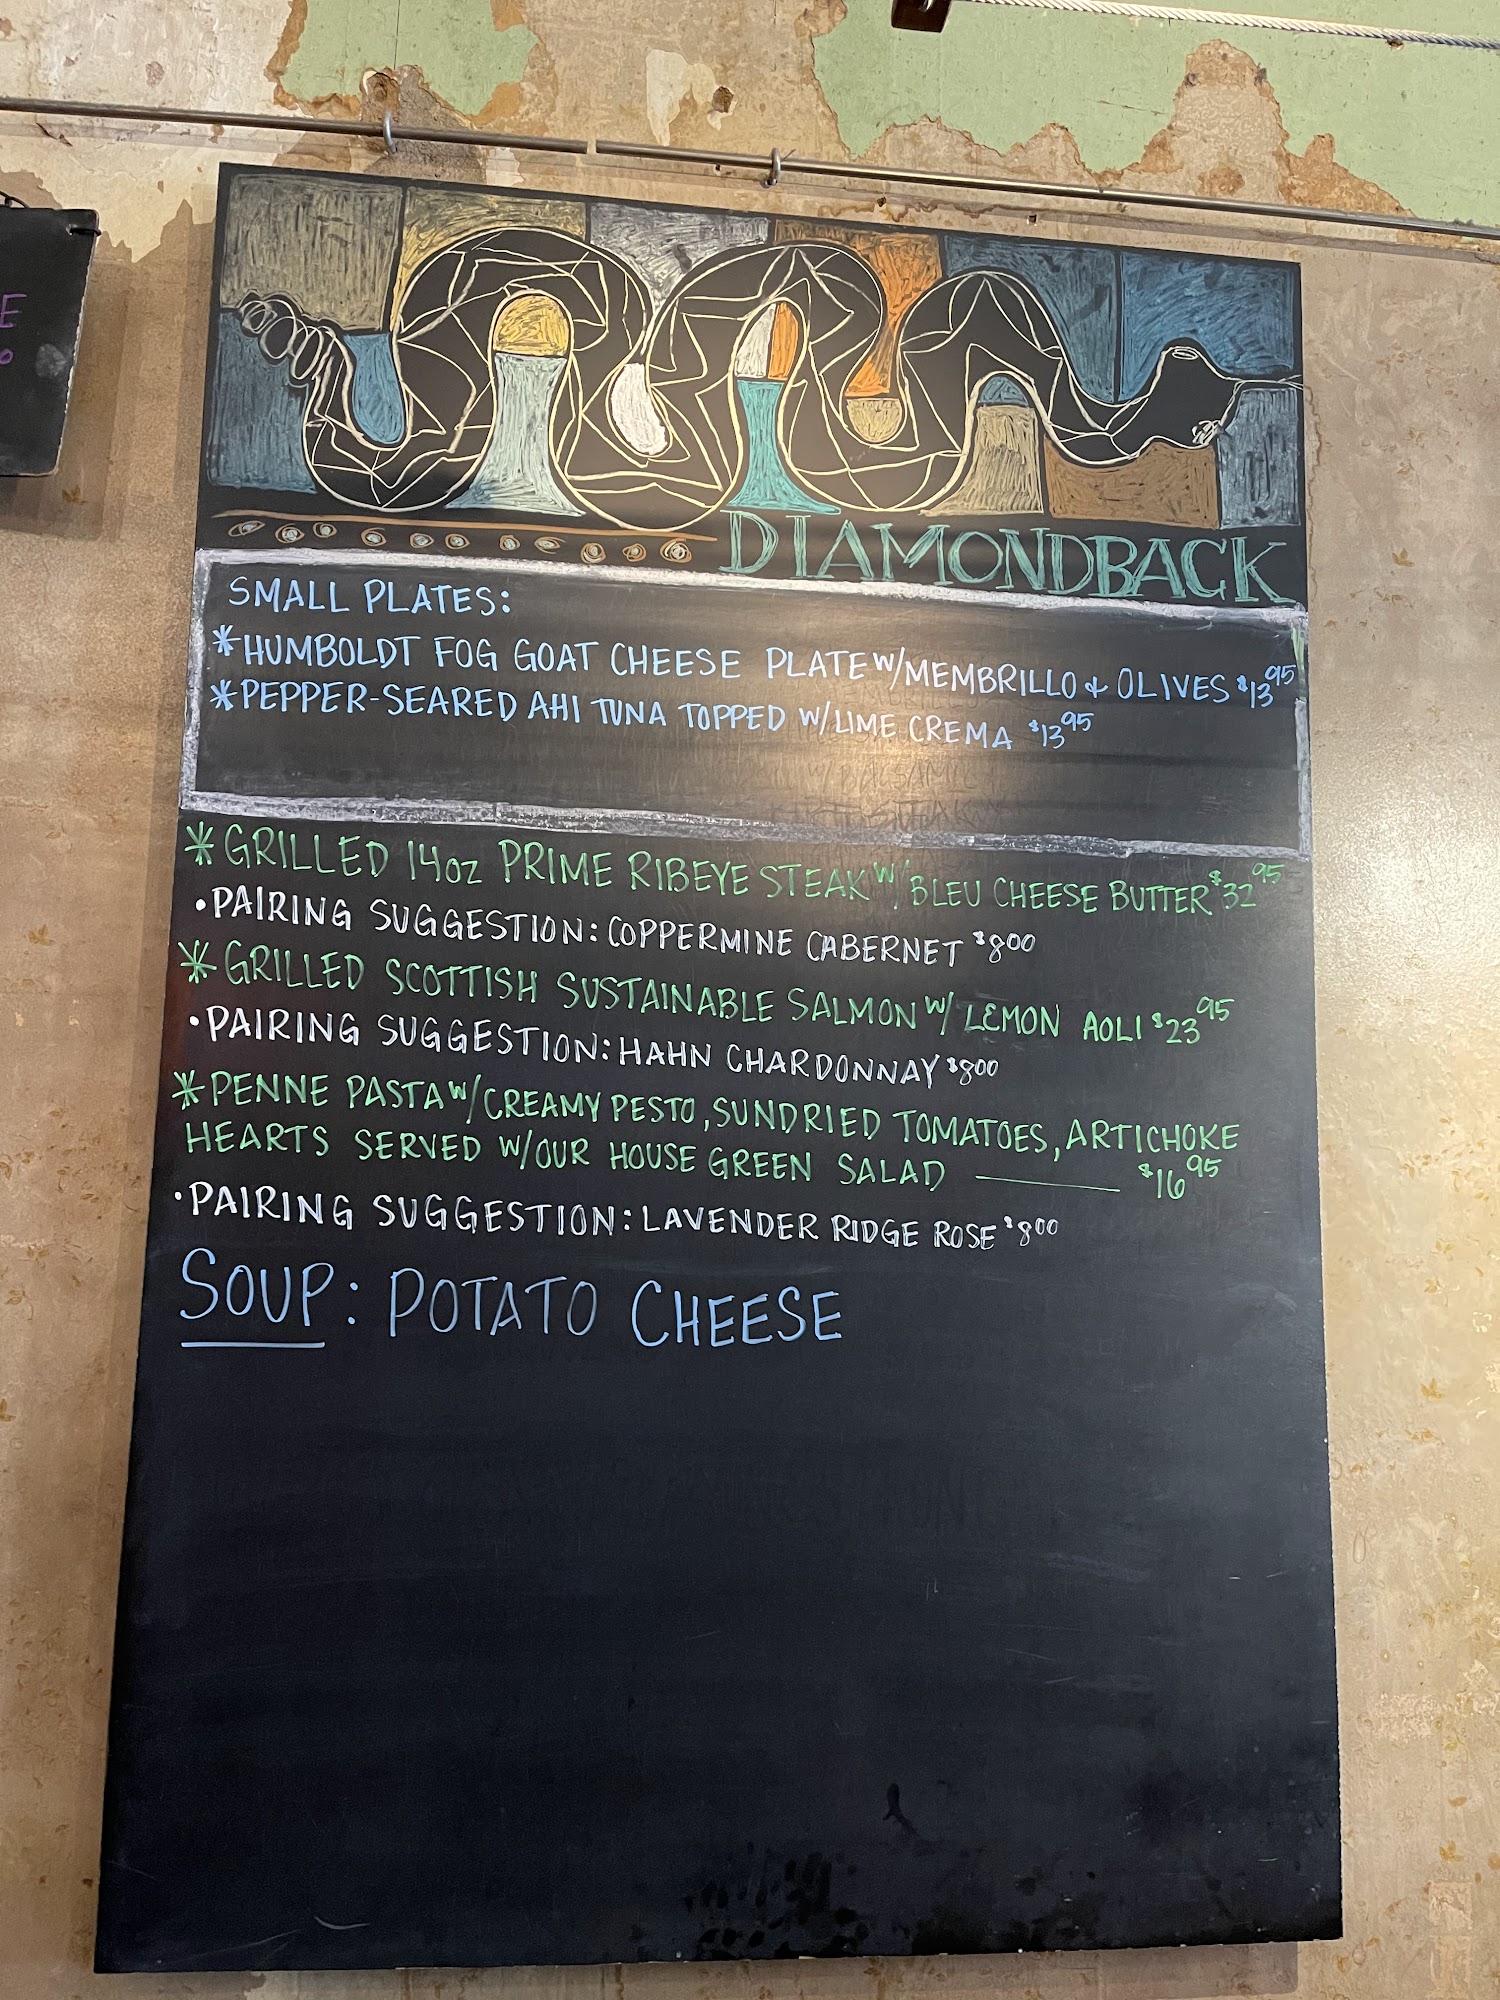 DIAMONDBACK
SMALL PLATES:
*HUMBOLDT FOG GOAT CHEESE PLATE W/MEMBRILLO & OLIVES $13.95
*PEPPER-SEARED AHI TUNA TOPPED W/LIME CREMA $13.95
*GRILLED 14oz PRIME RIBEYE STEAK W/ BLEU CHEESE BUTTER $32.95
•PAIRING SUGGESTION: COPPERMINE CABERNET $8.00
*GRILLED SCOTTISH SUSTAINABLE SALMON W/ LEMON AOLI $23.95
•PAIRING SUGGESTION: HAHN CHARDONNAY $8.00
*PENNE PASTA W/CREAMY PESTO, SUNDRIED TOMATOES, ARTICHOKE
HEARTS SERVED W/OUR HOUSE GREEN SALAD — $16.95
•PAIRING SUGGESTION: LAVENDER RIDGE ROSE $8.00
SOUP: POTATO CHEESE